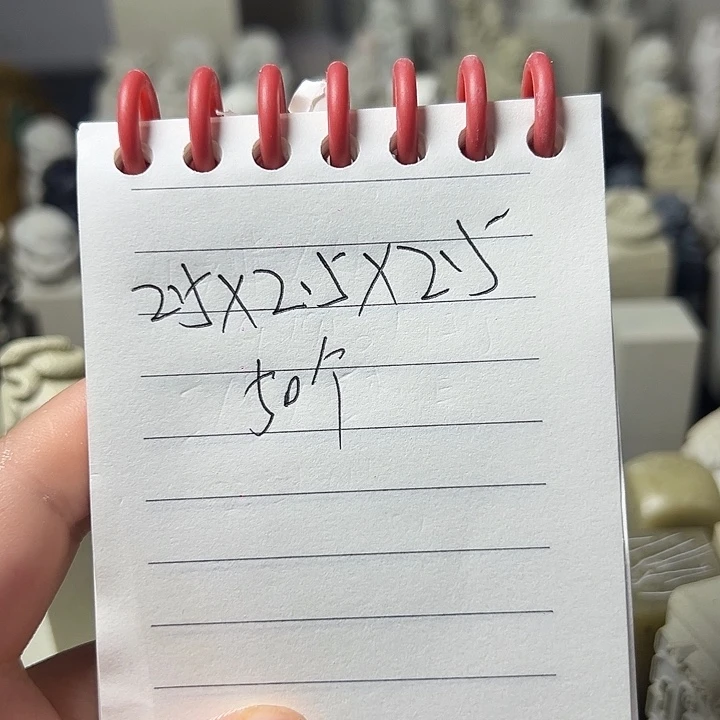 2.5X2.5X2.5
50个